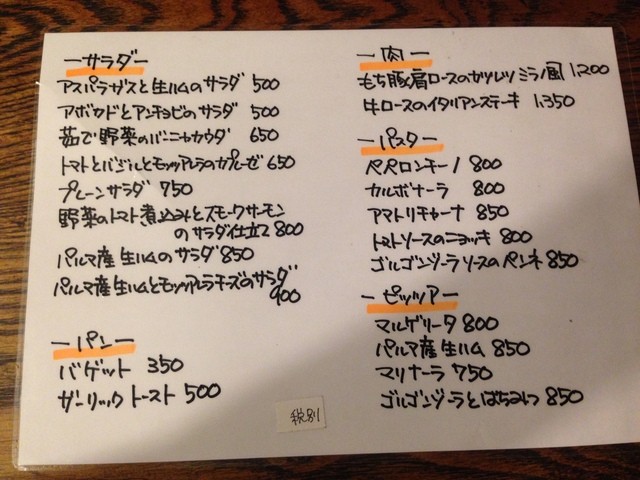 ーサラダー
アスパラガスと生ハムのサラダ 500
アボカドとアンチョビのサラダ 500
茹で野菜のバーニャカウダ 650
トマトとバジルとモッツアレラのカプレーゼ 650
プレーンサラダ 750
野菜のトマト煮込みとスモークサーモン
のサラダ仕立て 800
パルマ産生ハムのサラダ 850
パルマ産生ハムとモッツアレラチーズのサラダ
900
ーパンー
バゲット 350
ガーリックトースト 500
ー肉ー
もち豚肩ロースのカツレツミラノ風 1,200
牛ロースのイタリアンステーキ 1,350
ーパスター
ペペロンチーノ 800
カルボナーラ 800
アマトリチャーナ 850
トマトソースのニョッキ 800
ゴルゴンゾーラソースのペンネ 850
ーピッツアー
マルゲリータ 800
パルマ産生ハム 850
マリナーラ 750
ゴルゴンゾーラとはちみつ 850
税別